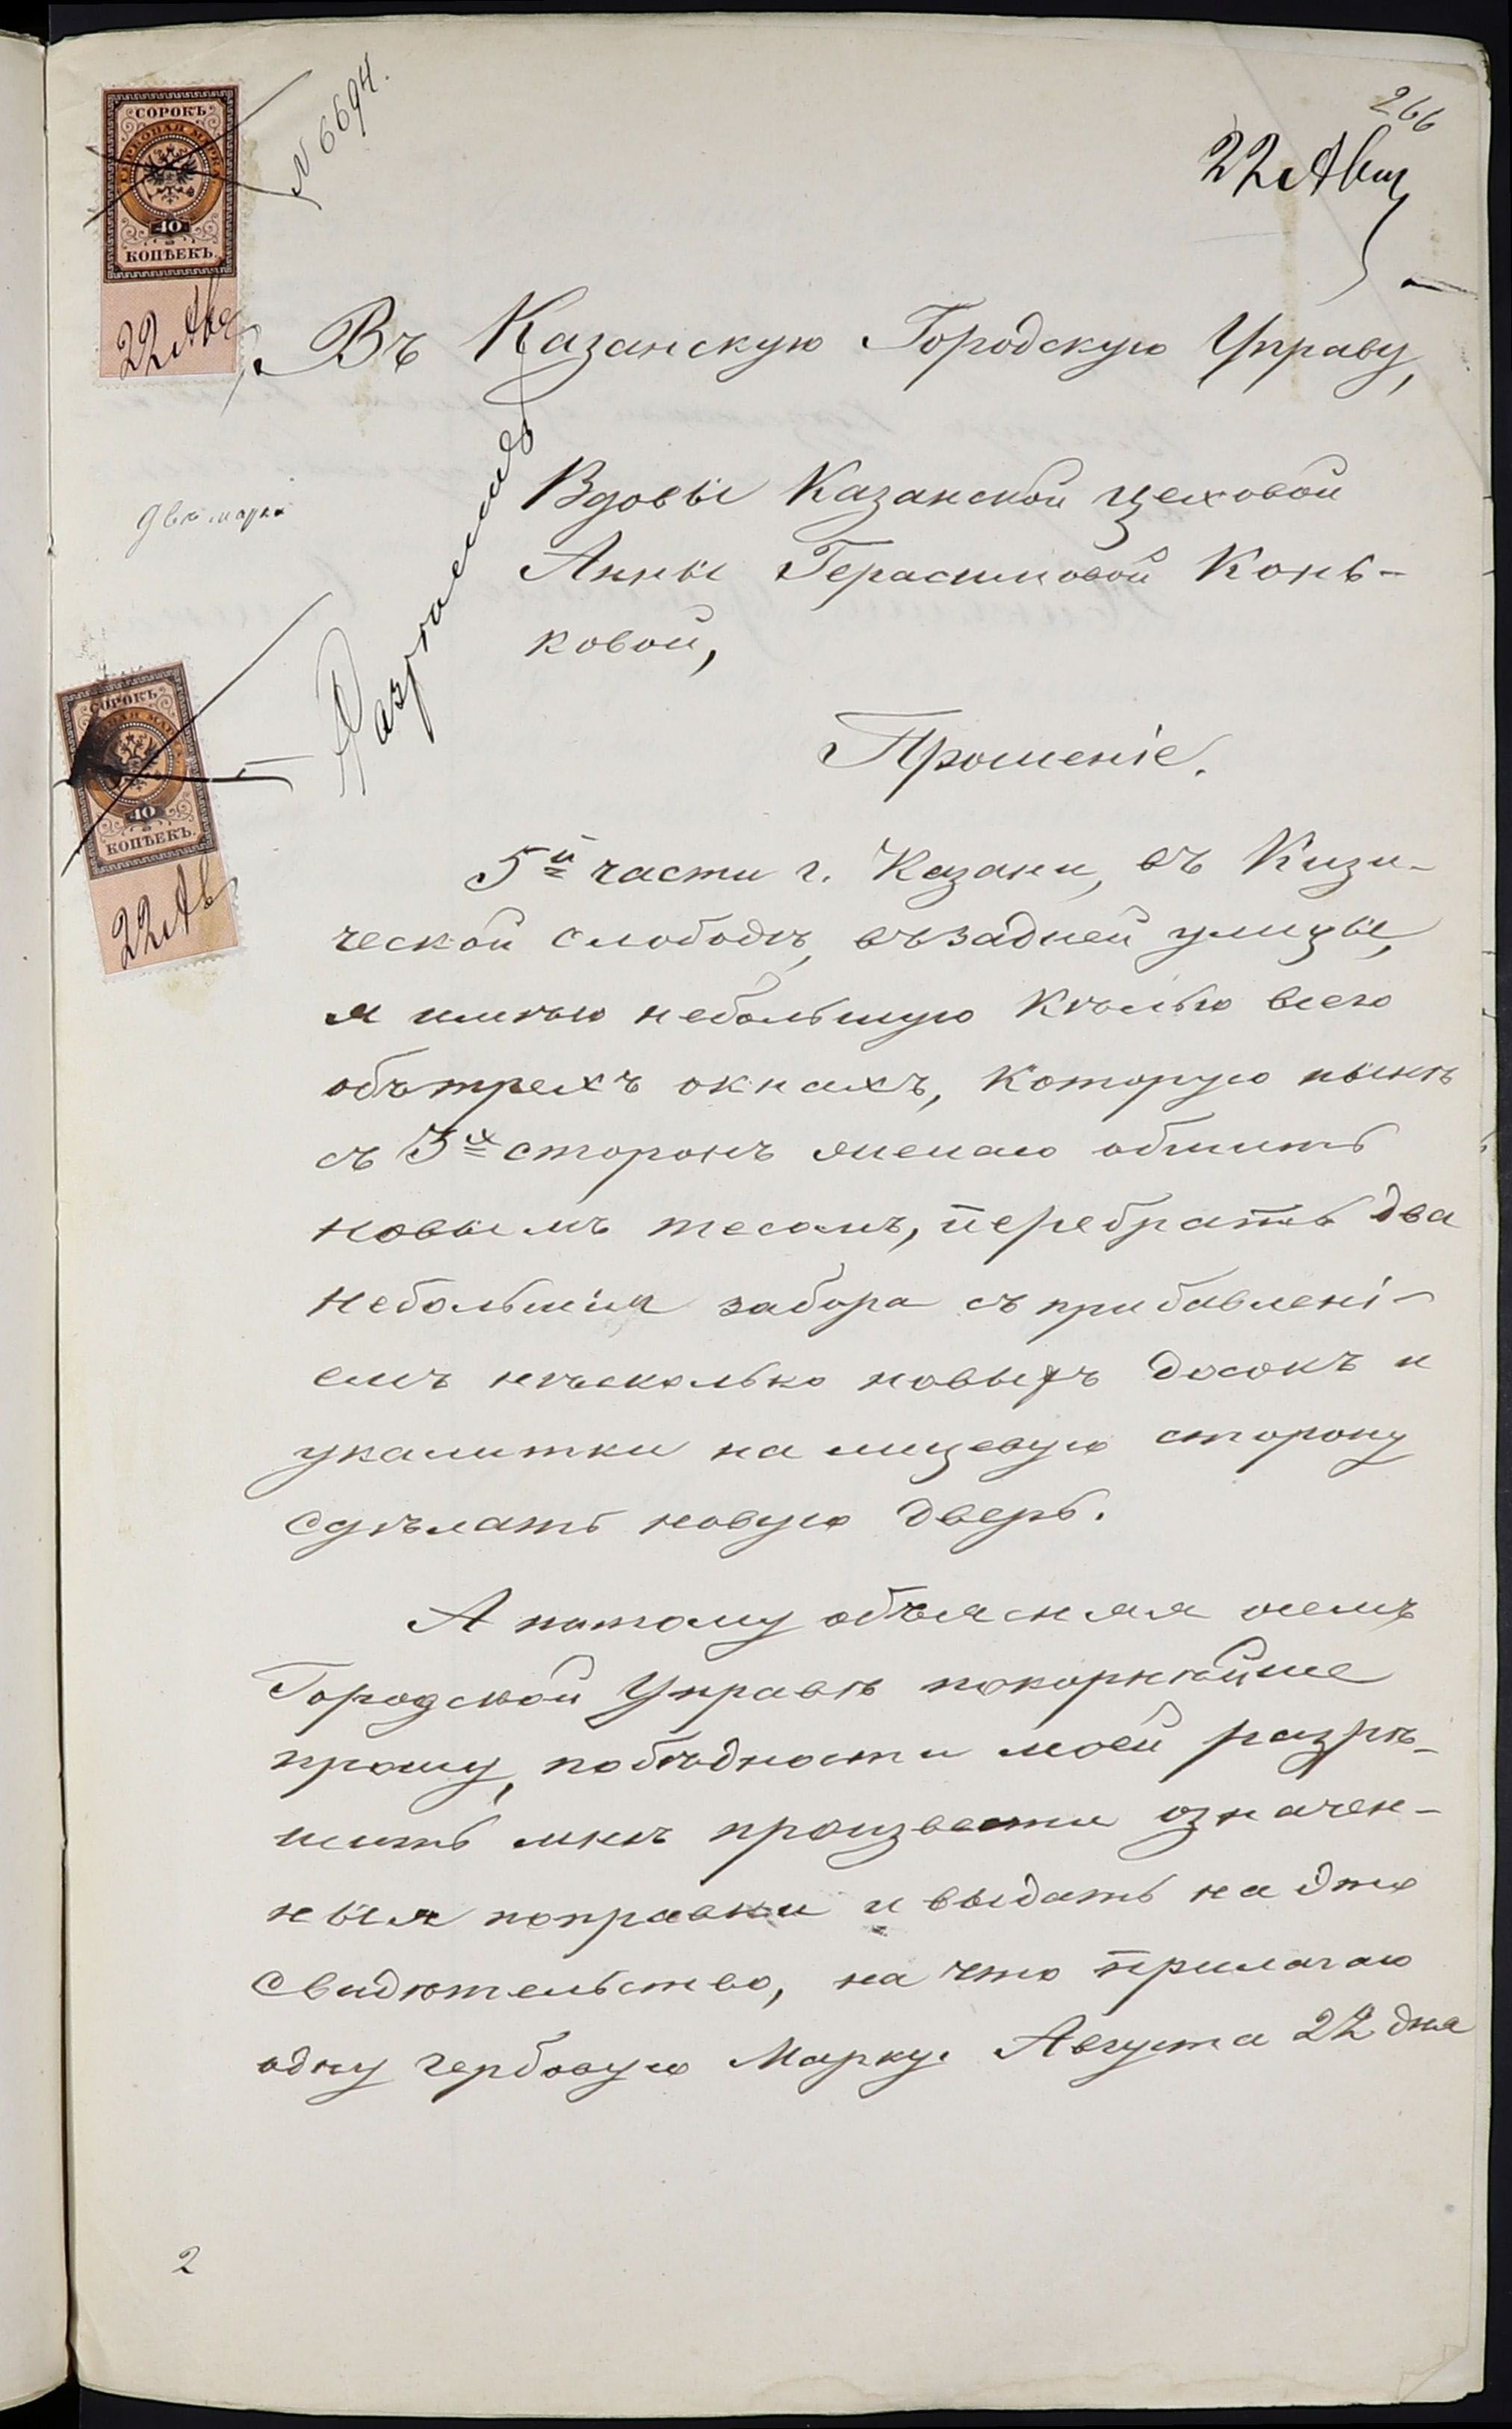 266
22 Авг
№ 6694.
СОРОКЪ
ГЕРБОВАЯ МАРКА
40
КОПѢЕКЪ.
22 Авг
Въ Казанскую Городскую Управу,
двѣ марки
Вдовы Казанской цеховой
Анны Герасимовой Конь-
ковой,
СОРОКЪ
ГЕРБОВАЯ МАРКА
40
КОПѢЕКЪ.
22 Ав
Прошеніе.
5й части г. Казани, въ Кизи-
ческой слободѣ, въ задней улицы,
я имѣю небольшую кѣлью всего
объ трехъ окнахъ, которую нынѣ
съ 3х сторонъ желаю обшить
новымъ тесомъ, перебрать два
небольшія забора съ прибавлені-
емъ нѣсколько новыхъ досокъ и
у калитки на лицевую сторону
сдѣлать новую дверь.
А потому объясняя о семъ
Городской Управѣ покорнѣйше
прошу, по бѣдности моей разрѣ-
шить мнѣ произвести означен-
ныя поправки и выдать на это
свидѣтельство, на что прилагаю
одну гербовую марку. Августа 22 дня
2